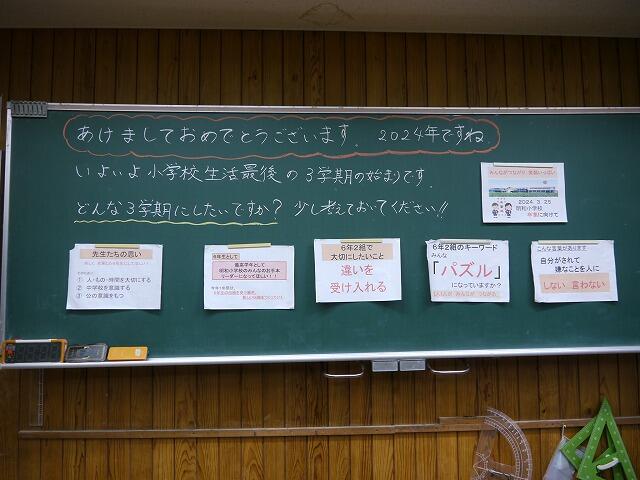 あけましておめでとうございます。 2024年ですね
いよいよ小学校生活最後の3学期の始まりです。
どんな3学期にしたいですか？ 少し考えておいてください!!
みんながつながり 笑顔いっぱい
2024.3.25
明和小学校
卒業に向けて
先生たちの思い
① 人・もの・時間を大切にする
② 中学校を意識する
③ 公の意識をもつ
6年生として
最高学年として
明和小学校のみんなのお手本
リーダーになってほしい！！
6年2組で
大切にしたいこと
違いを
受け入れる
6年2組のキーワード
みんな
「パズル」
になっていますか？
こんな言葉があります
自分がされて
嫌なことを人に
しない 言わない